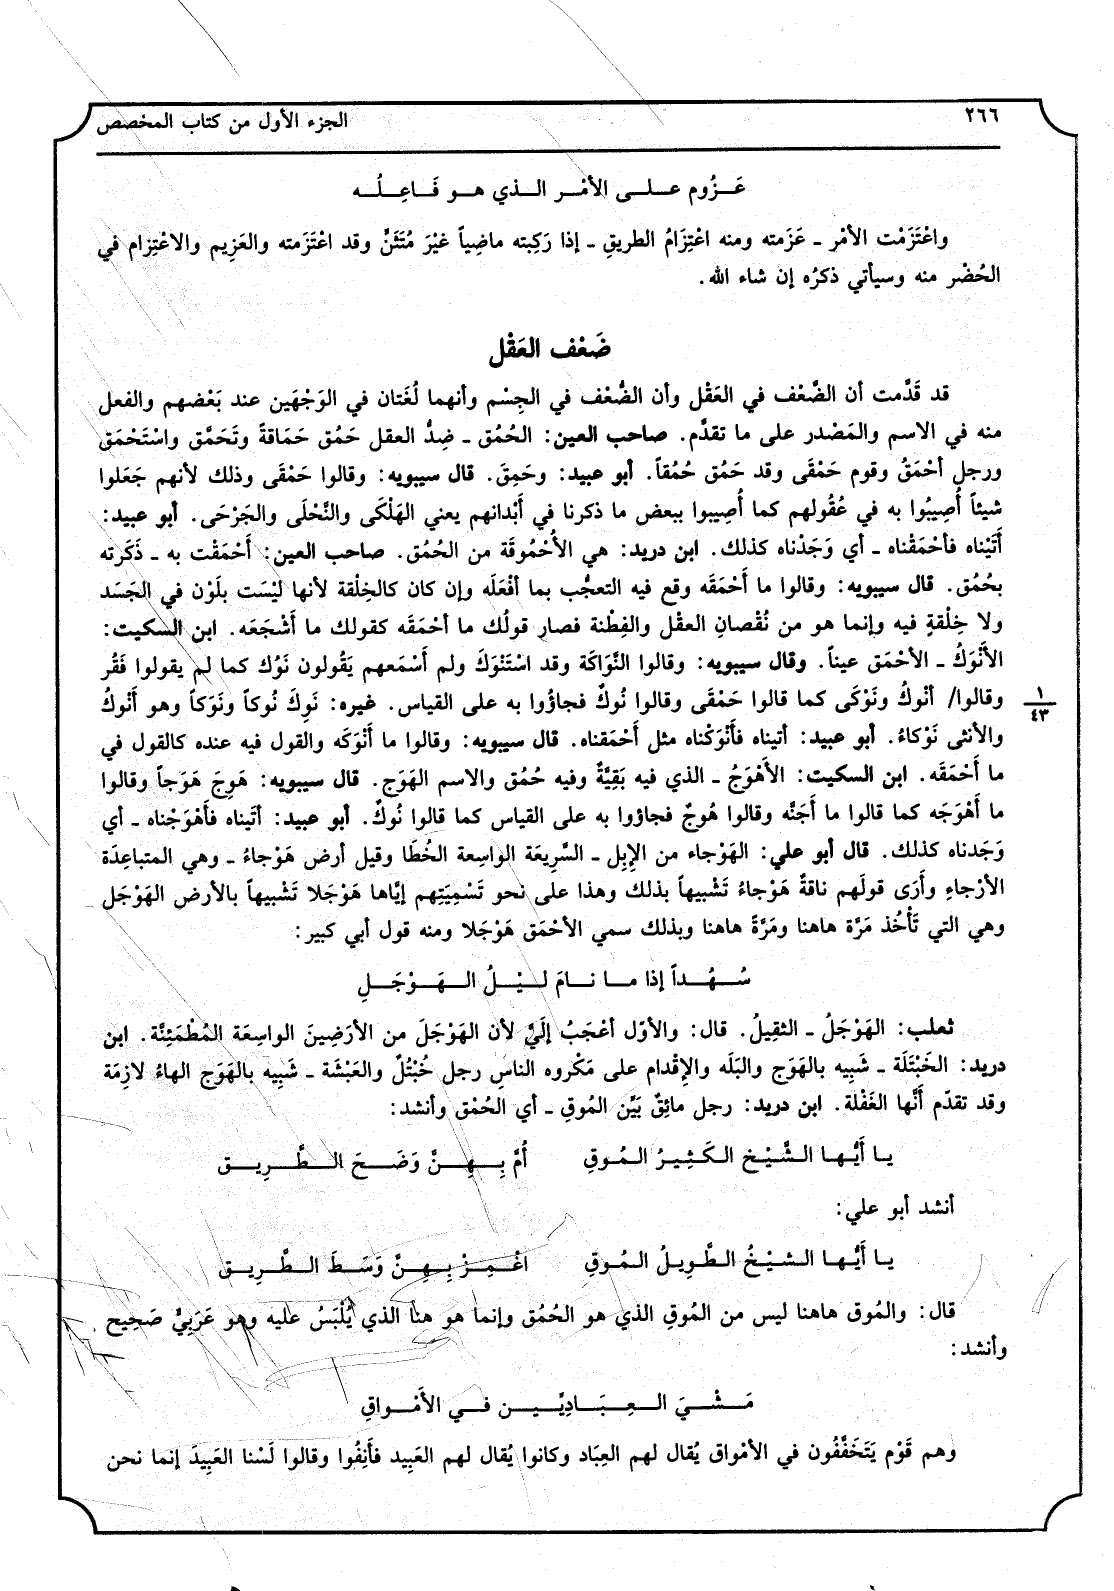 ٢٦٦
الجزء الأول من كتاب المخصص
عَـزُوم علـى الأمْـر الـذي هـو فَـاعِـلُـه
واعْتَزَمْت الأمْر ـ عَزَمته ومنه اعْتِزَامُ الطريقِ ـ إذا رَكِبته ماضِياً غيْرَ مُتَثَنٍّ وقد اعْتَزَمته والعَزِيم والاعْتِزام في
الحُضْر منه وسيأتي ذكرُه إن شاء الله.
ضَعْف العَقْل
قد قَدَّمت أن الضَّعْف في العَقْل وأن الضُّعْف في الجِسْم وأنهما لُغَتان في الوَجْهَين عند بَعْضهم والفعل
منه في الاسم والمَصْدر على ما تقدَّم. صاحب العين: الحُمُق ـ ضِدُّ العقل حَمُق حَمَاقةً وتَحَمَّق واسْتَحْمَق
ورجل أحْمَقُ وقوم حَمْقَى وقد حَمُق حُمُقاً. أبو عبيد: وحَمِقَ. قال سيبويه: وقالوا حَمْقَى وذلك لأنهم جَعَلوا
شيئاً أُصِيبُوا به في عُقُولهم كما أُصِيبوا ببعض ما ذكرنا في أَبْدانهم يعني الهَلْكَى والنَّحْلَى والجَرْحَى. أبو عبيد:
أَتَيْناه فأحْمَقْناه ـ أي وَجَدْناه كذلك. ابن دريد: هي الأُحْمُوقَة من الحُمُق. صاحب العين: أَحْمَقْت به ـ ذَكَرته
بحُمُق. قال سيبويه: وقالوا ما أَحْمَقَه وقع فيه التعجُّب بما أفْعَلَه وإن كان كالخِلْقة لأنها ليْسَت بلَوْن في الجَسَد
ولا خِلْقةٍ فيه وإنما هو من نُقْصانِ العقْل والفِطْنة فصار قولُك ما أحْمَقَه كقولك ما أَشْجَعَه. ابن السكيت:
الأَنْوَكُ ـ الأحْمَق عيناً. وقال سيبويه: وقالوا النَّوَاكَة وقد اسْتَنْوَكَ ولم أَسْمَعهم يَقُولون نَوُك كما لم يقولوا فَقُر
وقالوا/ أنْوكُ ونَوْكَى كما قالوا حَمْقَى وقالوا نُوكٌ فجاؤوا به على القياس. غيره: نَوِكَ نُوكاً ونَوَكاً وهو أَنْوكُ
١
٤٣
والأنثى نَوْكاءُ. أبو عبيد: أتيناه فأَنْوَكْناه مثل أَحْمَقناه. قال سيبويه: وقالوا ما أَنْوَكَه والقول فيه عنده كالقول في
ما أَحْمَقَه. ابن السكيت: الأَهْوَجُ ـ الذي فيه بَقِيَّةٌ وفيه حُمُق والاسم الهَوَج. قال سيبويه: هَوِجَ هَوَجاً وقالوا
ما أَهْوَجَه كما قالوا ما أَجَنَّه وقالوا هُوجٌ فجاؤوا به على القياس كما قالوا نُوكٌ. أبو عبيد: أتيْناه فأَهْوَجْناه ـ أي
وَجَدناه كذلك. قال أبو علي: الهَوْجاء من الإِبِل ـ السَّرِيعَة الواسِعة الخُطَا وقيل أرض هَوْجاءُ ـ وهي المتباعِدَة
الأرْجاءِ وأَرَى قولَهم ناقةٌ هَوْجاءُ تَشْبيهاً بذلك وهذا على نحو تَسْمِيَتِهم إيَّاها هَوْجَلا تَشْبيهاً بالأرض الهَوْجَل
وهي التي تَأْخُذ مَرَّة هاهنا ومَرَّةً هاهنا وبذلك سمي الأحْمَق هَوْجَلا ومنه قول أبي كبير:
سُـهُـداً إذا مـا نـامَ لـيْـلُ الـهَـوْجَـلِ
ثعلب: الهَوْجَلُ ـ الثقِيلُ. قال: والأوّل أعْجَبُ إلَيَّ لأن الهَوْجَلَ من الأرَضِينَ الواسِعَة المُطْمَئِنَّة. ابن
دريد: الخَبْتَلَة ـ شَبِيه بالهَوَج والبَلَه والإقْدام على مَكْروه الناسِ رجل خُبْتُلٌ والعَبْشَة ـ شَبِيه بالهَوَج الهاءُ لازِمَة
وقد تقدّم أَنَّها الغَفْلة. ابن دريد: رجل مائِقٌ بَيِّن المُوقِ ـ أي الحُمْق وأنشد:
يـا أَيُّـهـا الـشَّـيْـخ الـكَـثِـيـرُ الـمُـوقِ    أُمَّ بِـهِـنَّ وَضَـحَ الـطَّـرِيـقِ
أنشد أبو علي:
يـا أَيُّـهـا الـشـيْـخُ الطَّـوِيـلُ المُـوقِ    اغْـمِـزْ بِـهِـنَّ وَسَـطَ الـطَّـرِيـقِ
قال: والمُوق هاهنا ليس من المُوقِ الذي هو الحُمُق وإنما هو هنا الذي يُلْبَسُ عليه وهو عَرَبِيٌّ صَحِيح
وأنشد:
مَـشْـيَ الـعِـبَـادِيِّـيـن فـي الأَمْـواقِ
وهم قَوْم يَتَخَفَّفُون في الأمْواق يُقال لهم العِبَاد وكانوا يُقال لهم العَبِيد فأَنِفُوا وقالوا لَسْنا العَبِيدَ إنما نحن